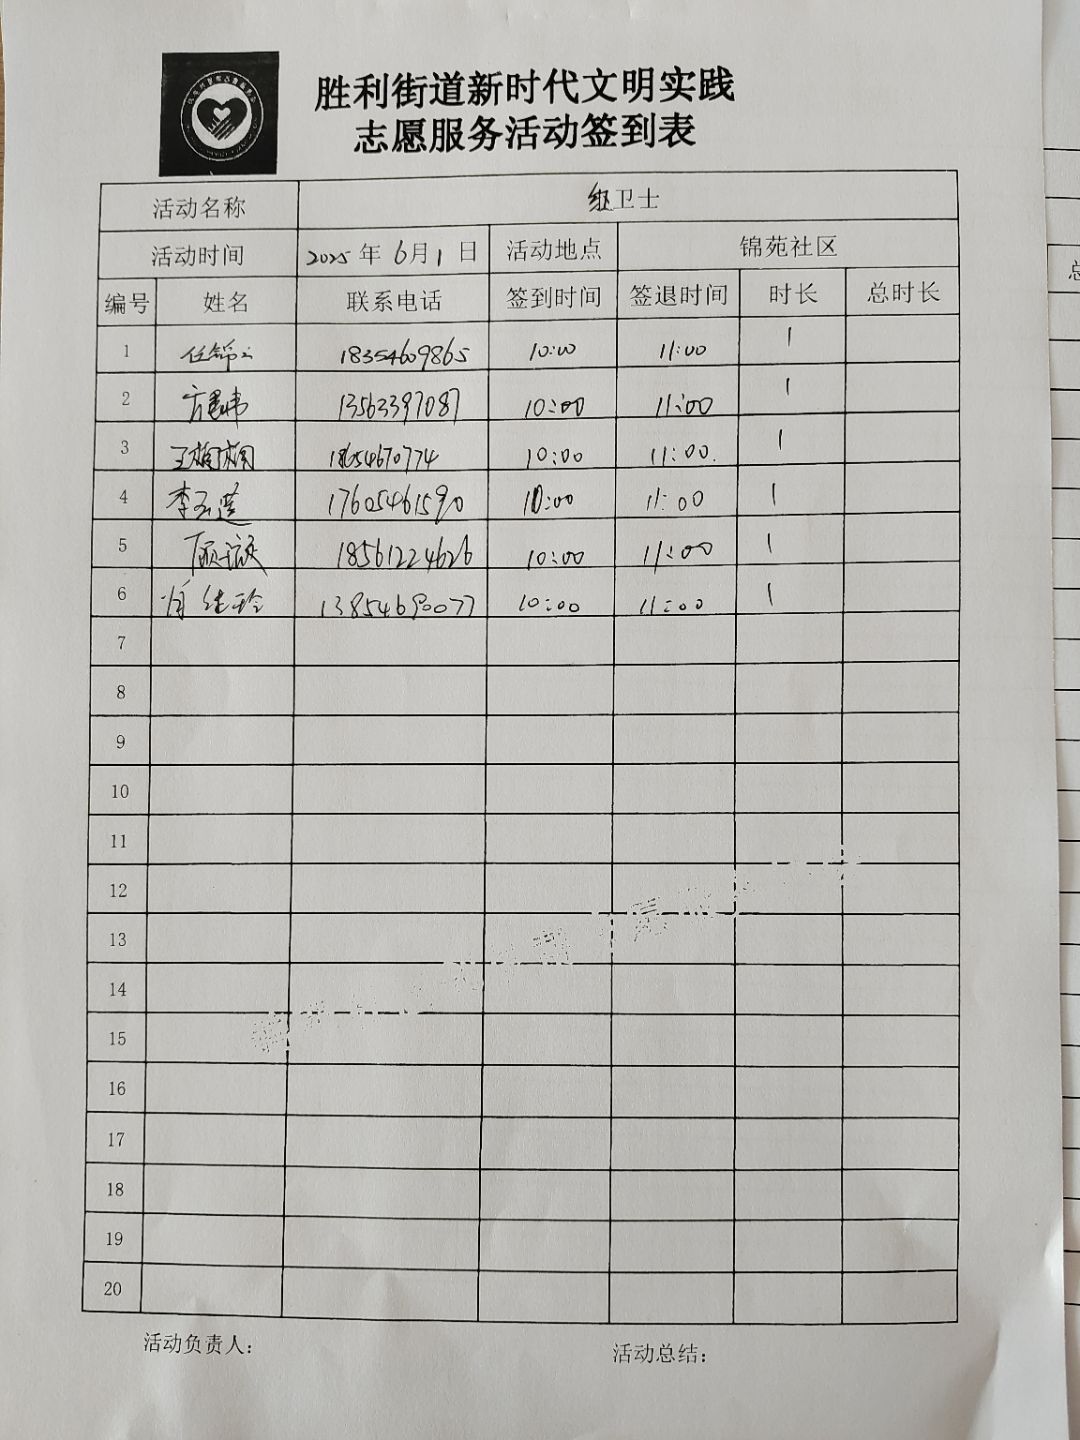 胜利街道新时代文明实践
志愿服务活动签到表
活动名称 红卫士
活动时间 2025年6月1日 活动地点 锦苑社区
编号 姓名 联系电话 签到时间 签退时间 时长 总时长
1 18354609865 10:00 11:00 1
2 13563397087 10:00 11:00 1
3 王楠楠 10:00 11:00. 1
4 李玉莲 17605461590 10:00 11:00 1
5 18561224626 10:00 11:00 1
6 肖佳玲 13854690077 10:00 11:00 1
7
8
9
10
11
12
13
14
15
16
17
18
19
20
活动负责人: 活动总结: